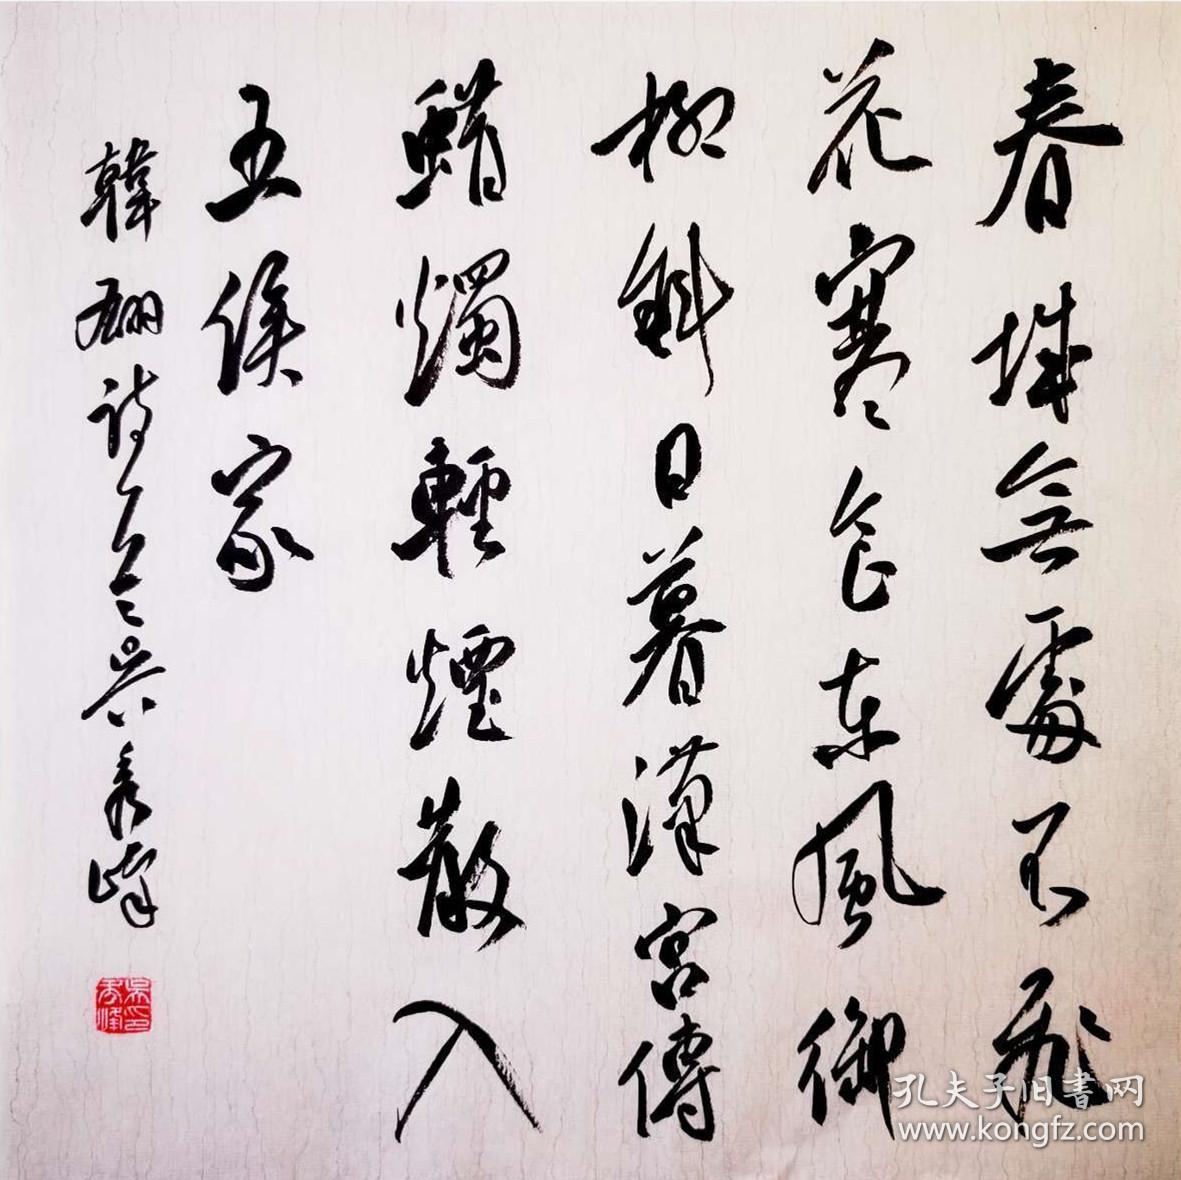 春城無處不飛
花寒食東風御
柳斜日暮漢宮傳
蜡燭輕煙散入
五侯家
韓翃詩 吳秀峰
吳印秀峰
孔夫子旧書网
www.kongfz.com